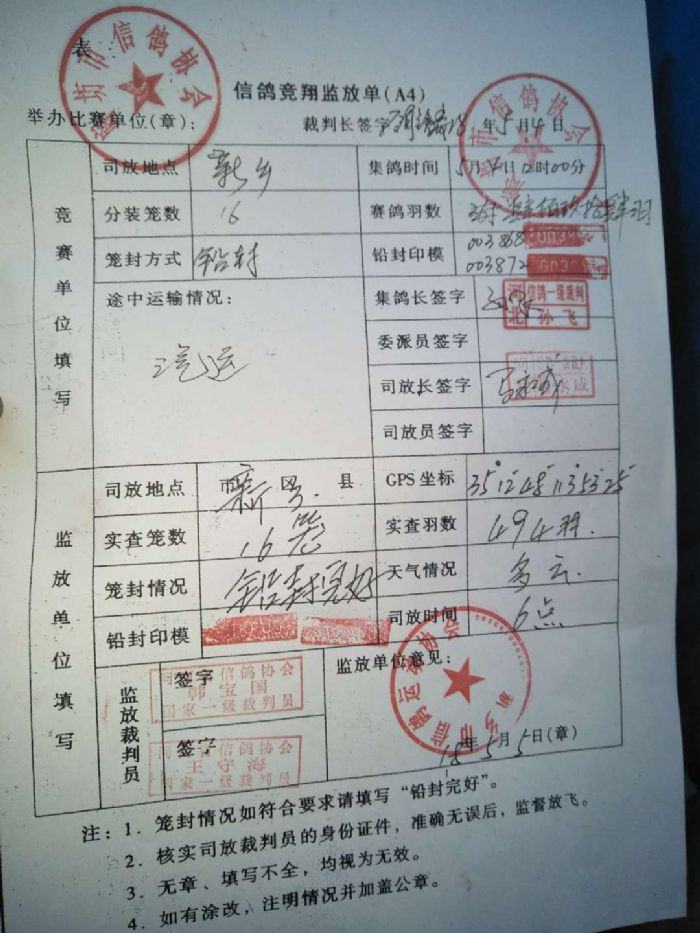 表
市信鸽协会
市信鸽协会
信鸽竞翔监放单(A4)
举办比赛单位(章): 裁判长签字 18 年 5 月 4 日
竞赛单位填写
司放地点 新乡 集鸽时间 5月4日12时00分
分装笼数 16 赛鸽羽数
笼封方式 铅封 铅封印模 003868
003872
途中运输情况: 集鸽长签字
信鸽一级裁判
北 孙飞
汽运 委派员签字
司放长签字
司放员签字
监放单位填写
司放地点 市 区 县 新乡 GPS坐标
实查笼数 16笼 实查羽数 494羽
笼封情况 铅封完好 天气情况 多云
铅封印模 司放时间 6点
监放裁判员
签字 信鸽协会
韩宝国
国家一级裁判员
签字 信鸽协会
王守海
国家一级裁判员
监放单位意见:
新乡市信鸽运动协会
18年5月5日(章)
注: 1. 笼封情况如符合要求请填写“铅封完好”。
2. 核实司放裁判员的身份证件，准确无误后，监督放飞。
3. 无章、填写不全，均视为无效。
4. 如有涂改，注明情况并加盖公章。